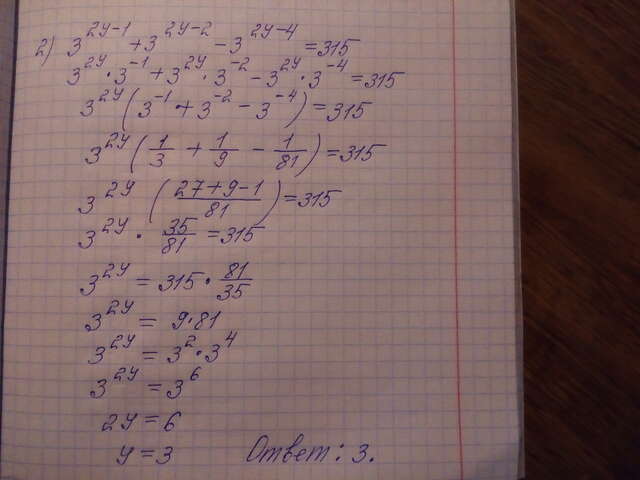 2) 3^(2y-1) + 3^(2y-2) - 3^(2y-4) = 315
3^(2y) · 3^(-1) + 3^(2y) · 3^(-2) - 3^(2y) · 3^(-4) = 315
3^(2y) (3^(-1) + 3^(-2) - 3^(-4)) = 315
3^(2y) (1/3 + 1/9 - 1/81) = 315
3^(2y) ((27+9-1)/81) = 315
3^(2y) · 35/81 = 315
3^(2y) = 315 · 81/35
3^(2y) = 9·81
3^(2y) = 3^2 · 3^4
3^(2y) = 3^6
2y = 6
y = 3 Ответ: 3.